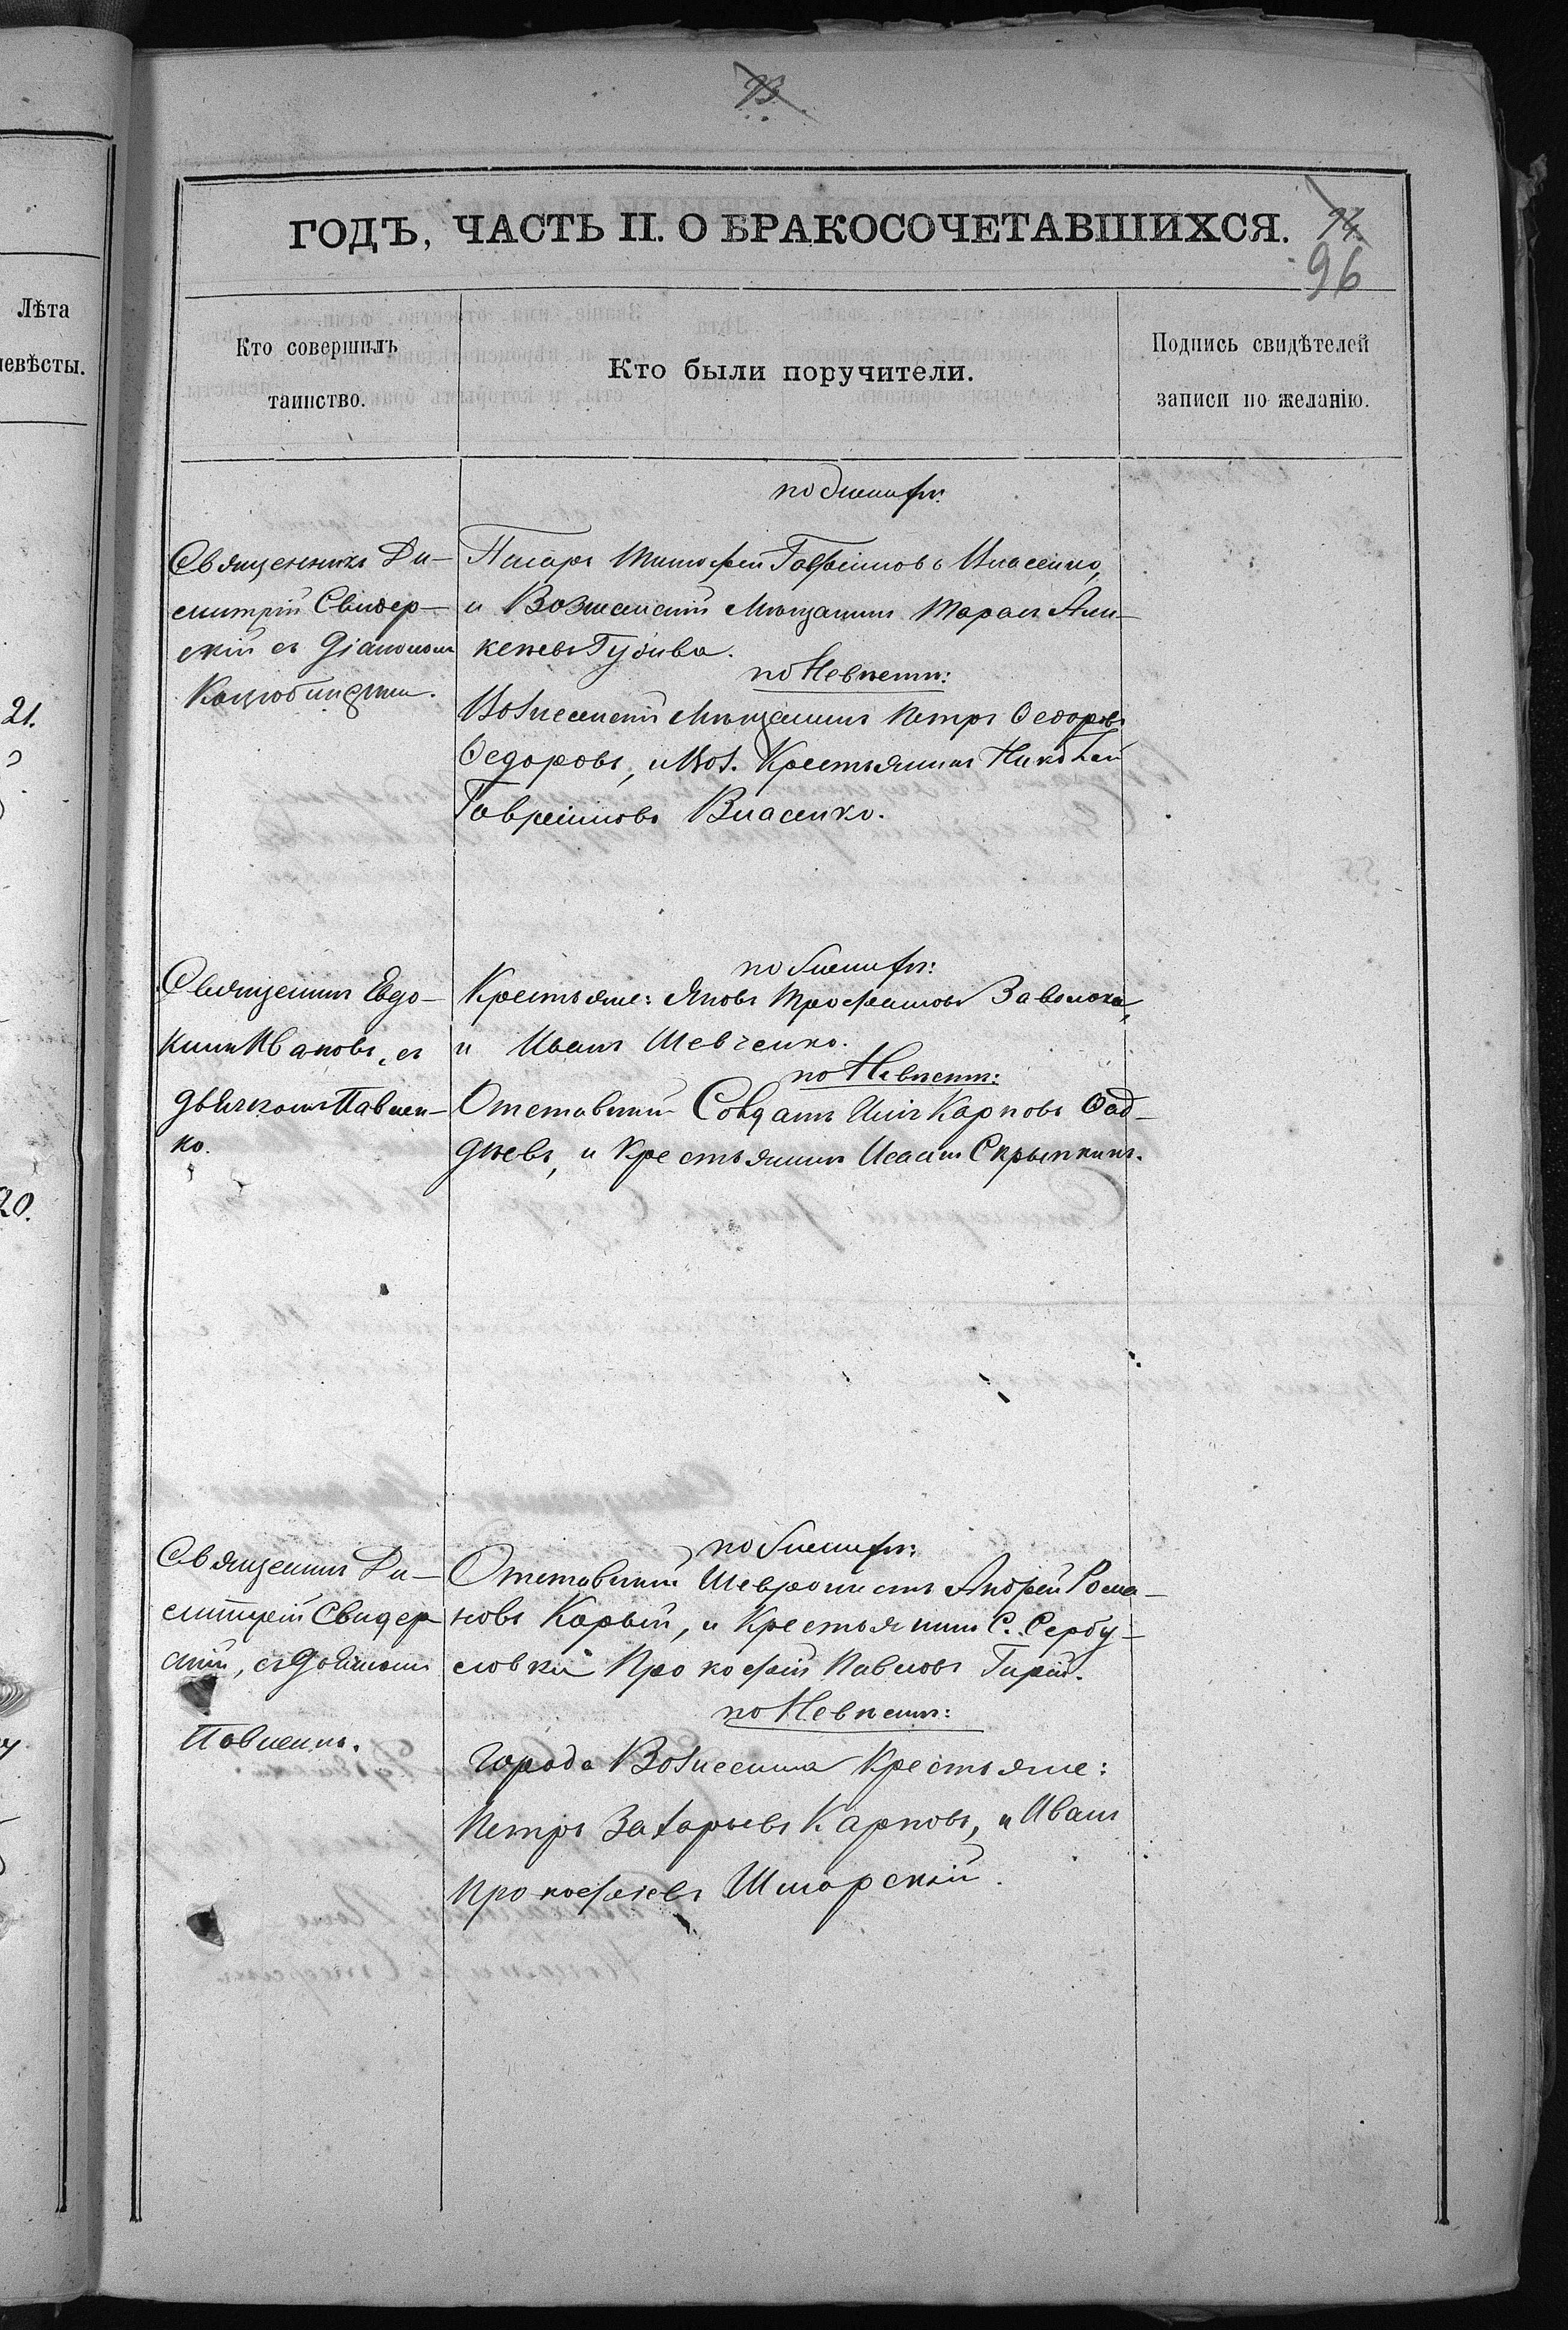 73
ГОДЪ, ЧАСТЬ II. О БРАКОСОЧЕТАВШИХСЯ.
96
Лѣта
невѣсты.
Кто совершилъ
таинство.
Кто были поручители.
Подпись свидѣтелей
записи по желанію.
21.
20.
по Женихѣ:
Священникъ Ди-
митрій Свидер-
скій съ Діакономъ
Коцюбинскимъ.
Писарь Тимофей Гавриловъ Власенко,
и Вознесенскій Мѣщанинъ Тарасъ
Губива.
по Невѣстѣ:
Вознесенскій Мѣщанинъ Петръ Ѳедоровъ
Ѳедоровъ, и Воз. Крестьянинъ Николай
Гавриловъ Власенко.
по Женихѣ:
Священникъ Евдо-
кимъ Ивановъ, съ
дьячкомъ Павлен-
ко.
Крестьяне: Яковъ Трофимовъ Заволока,
и Иванъ Шевченко.
по Невѣстѣ:
Отставный Солдатъ Илія Карповъ Ѳад-
дѣевъ, и Крестьянинъ Исаія Скрыпкинъ.
по Женихѣ:
Священникъ Ди-
митрій Свидер-
скій, съ дьячкомъ
Павленко.
Отставный Шевронистъ Андрей Рома-
новъ Карый, и Крестьянинъ С. Сербу-
ловки Прокофій Павловъ Гирій.
по Невѣстѣ:
Города Вознесенска Крестьяне:
Петръ Захарьевъ Карповъ, и Иванъ
Прокофіевъ Шиарскій.